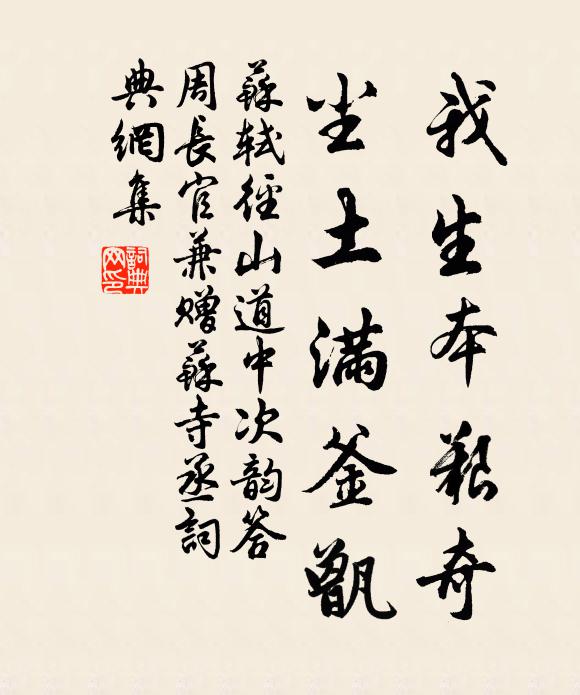 我生本艱奇
尘土滿釜甑
蘇軾徑山道中次韵答
周長官兼贈蘇寺丞詞
典網集
詞典網印